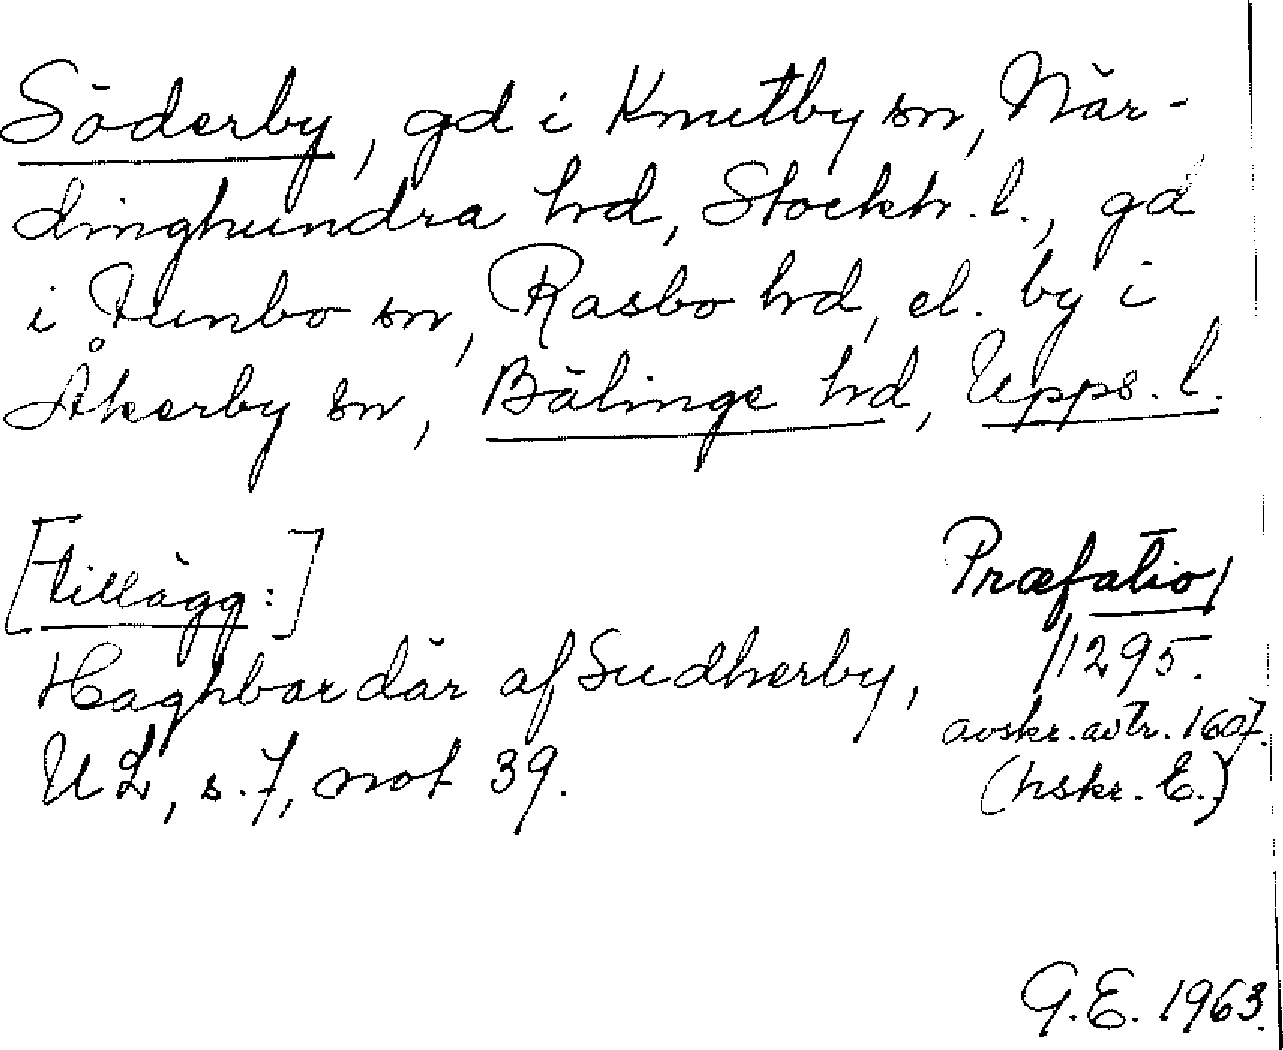 Söderby, gd i Knutby sn, När-
dinghundra hrd, Stockh. l., gd
i Funbo sn, Rasbo hrd, el. by i
Åkerby sn, Bälinge hrd, Upps. l.
[tillägg:]
Præfatio,
Haghbardär af Sudherby,
1295.
avskr. avtr. 1607.
UL, s. 7, not 39.
(hskr. E.)
G.E. 1963.